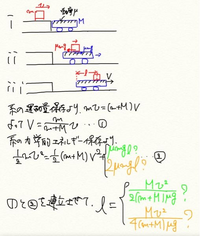 i m 動摩擦μ M
ii
iii V
系の運動量保存より、mv=(m+M)V
よって V= m/(m+M) v … ①
系の力学的エネルギー保存より、
1/2 mv² = 1/2 (m+M)V² + { μmgl? 2μmgl? … ②
①と②を連立させて、l = { Mv²/2(m+M)μg ? Mv²/4(m+M)μg ?